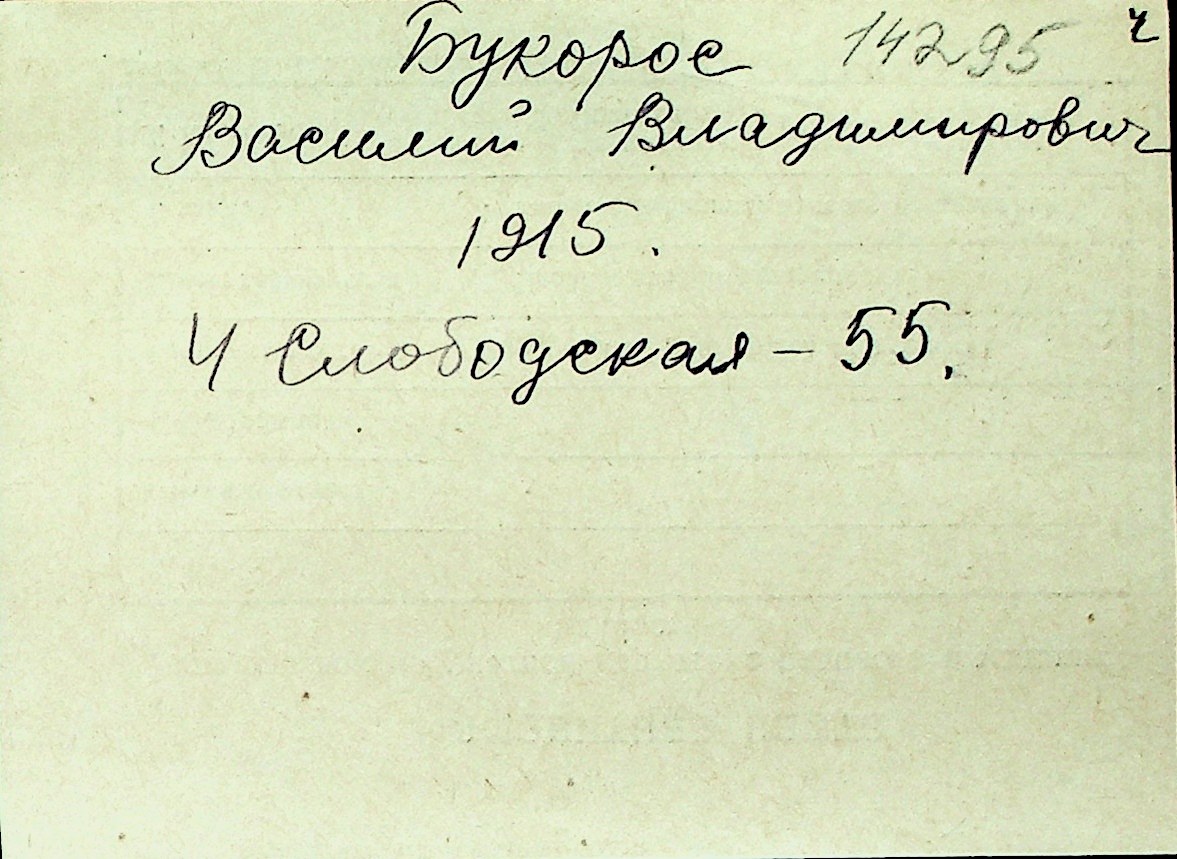 Букорос 14295 ч
Василий Владимирович
1915.
4 Слободская - 55.